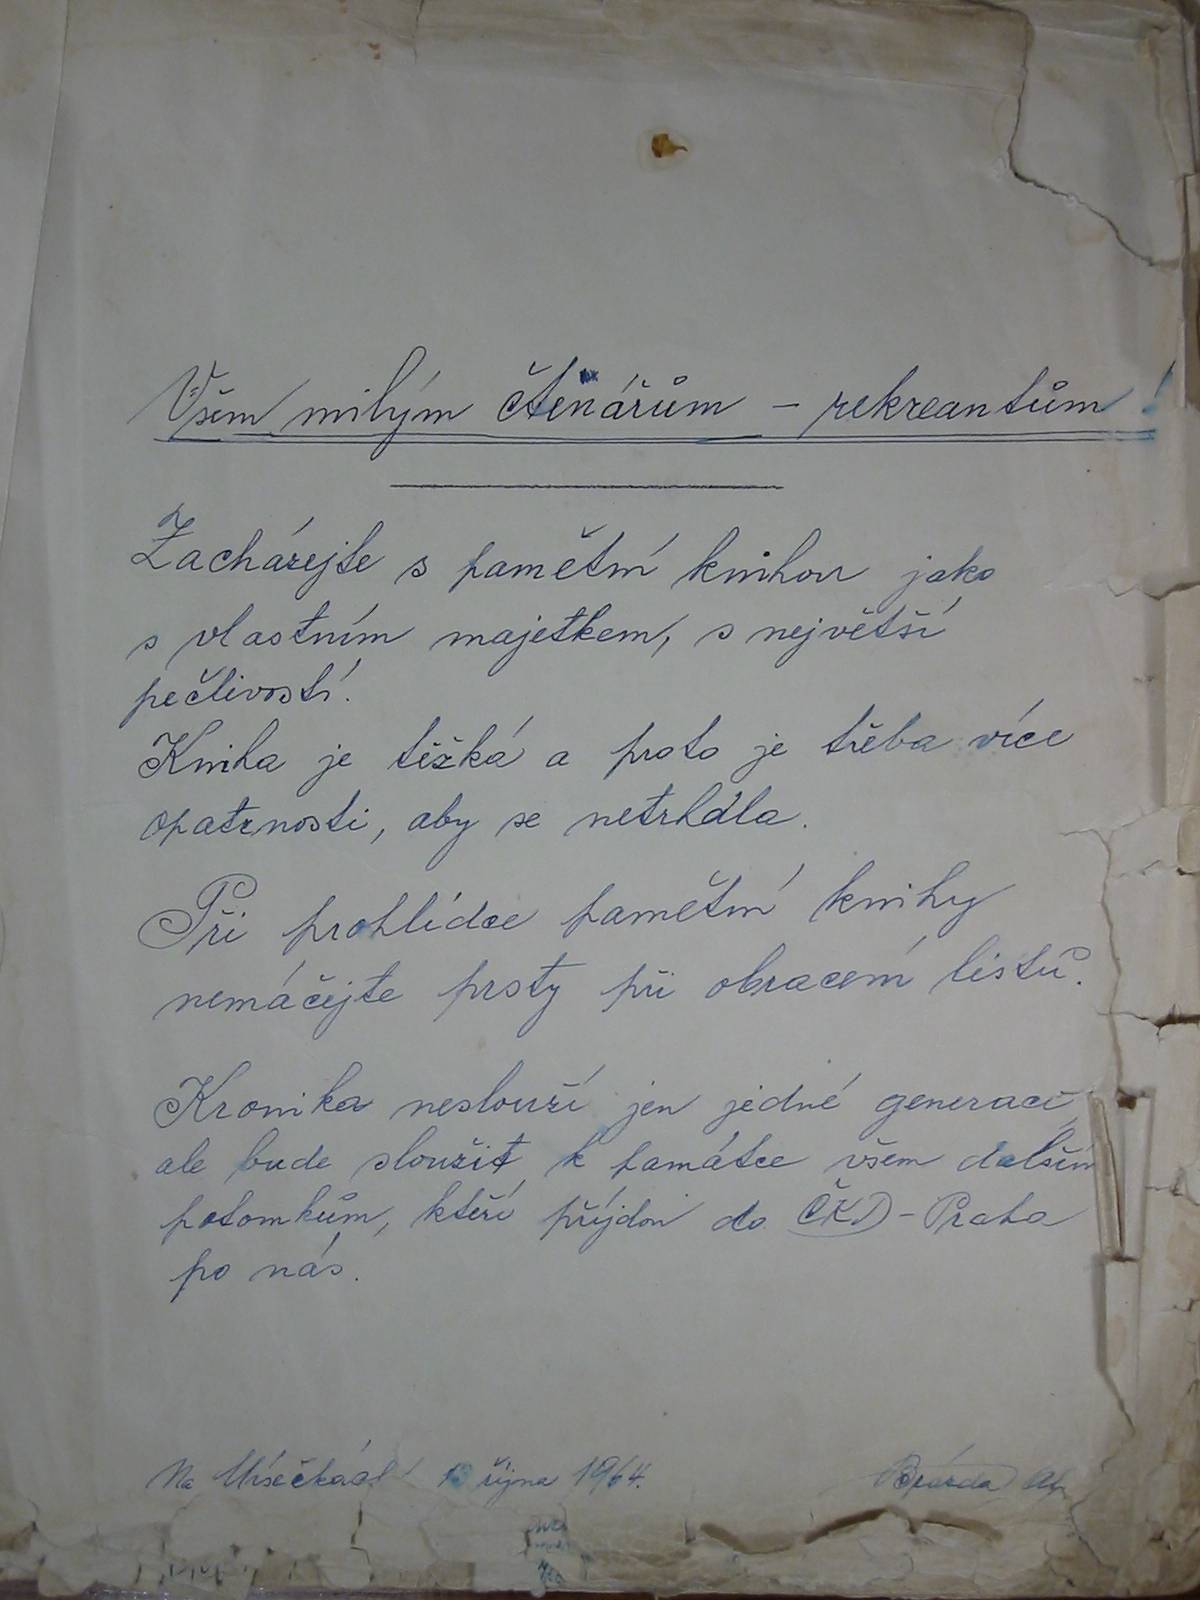 Všem milým čtenářům – rekreantům!
Zacházejte s pamětní knihou jako
s vlastním majetkem, s největší
pečlivostí.
Kniha je těžká a proto je třeba více
opatrnosti, aby se netrhala.
Při prohlídce pamětní knihy
nemáčejte prsty při obracení listů.
Kronika neslouží jen jedné generaci,
ale bude sloužit k památce všem dalším
potomkům, kteří příjdou do ČKD – Praha
po nás.
Na Mísečkách října 1964.
Brázda